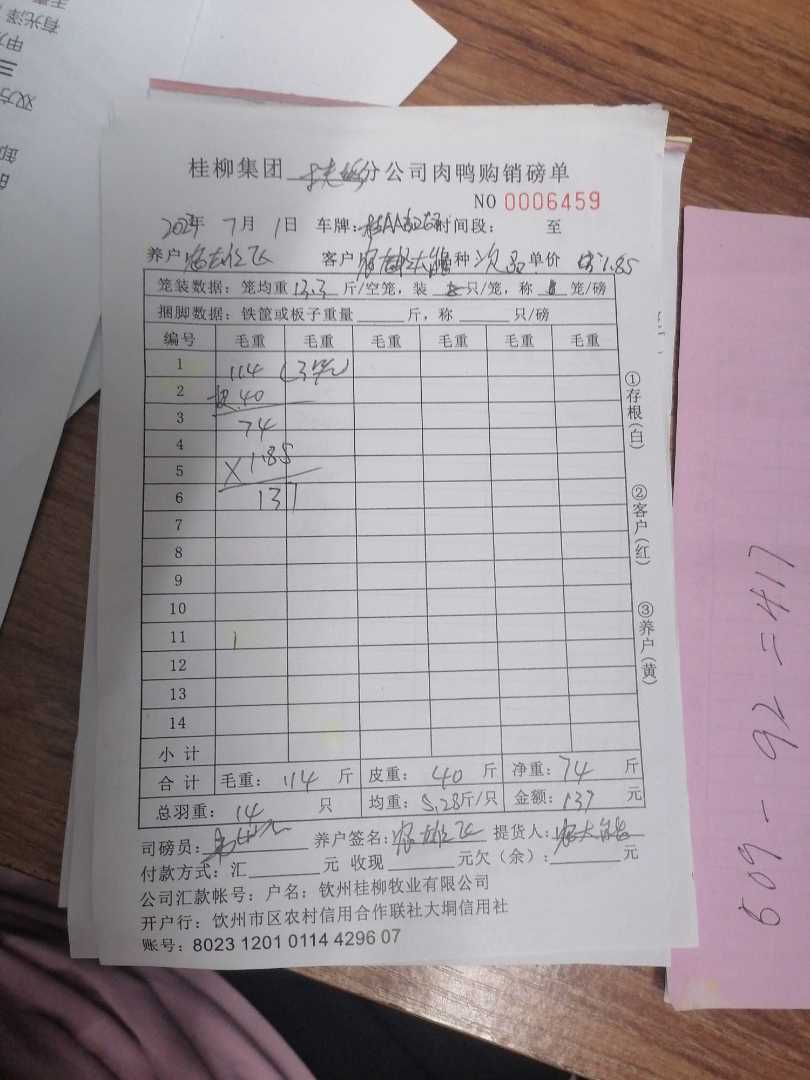 桂柳集团 分公司肉鸭购销磅单
NO 0006459
年 7月 1日 车牌: 时间段: 至
养户 客户 种 次品 单价 1.85
笼装数据：笼均重 13.3 斤/空笼，装 只/笼，称 笼/磅
捆脚数据：铁筐或板子重量 斤，称 只/磅
编号 毛重 毛重 毛重 毛重 毛重 毛重
1 114 (3笼)
2 皮.40
3 74
4
5 X1.85
6 137
7
8
9
10
11
12
13
14
小 计
合 计 毛重: 114 斤 皮重: 40 斤 净重: 74 斤
总羽重: 14 只 均重: 5.28斤/只 金额: 137 元
司磅员: 养户签名: 提货人:
付款方式: 汇 元 收现 元欠（余）: 元
公司汇款帐号：户名：钦州桂柳牧业有限公司
开户行：钦州市区农村信用合作联社大垌信用社
账号：8023 1201 0114 4296 07
①存根(白)
②客户(红)
③养户(黄)
509 - 92 = 417
有光泽
甲
三
双方
卸
的